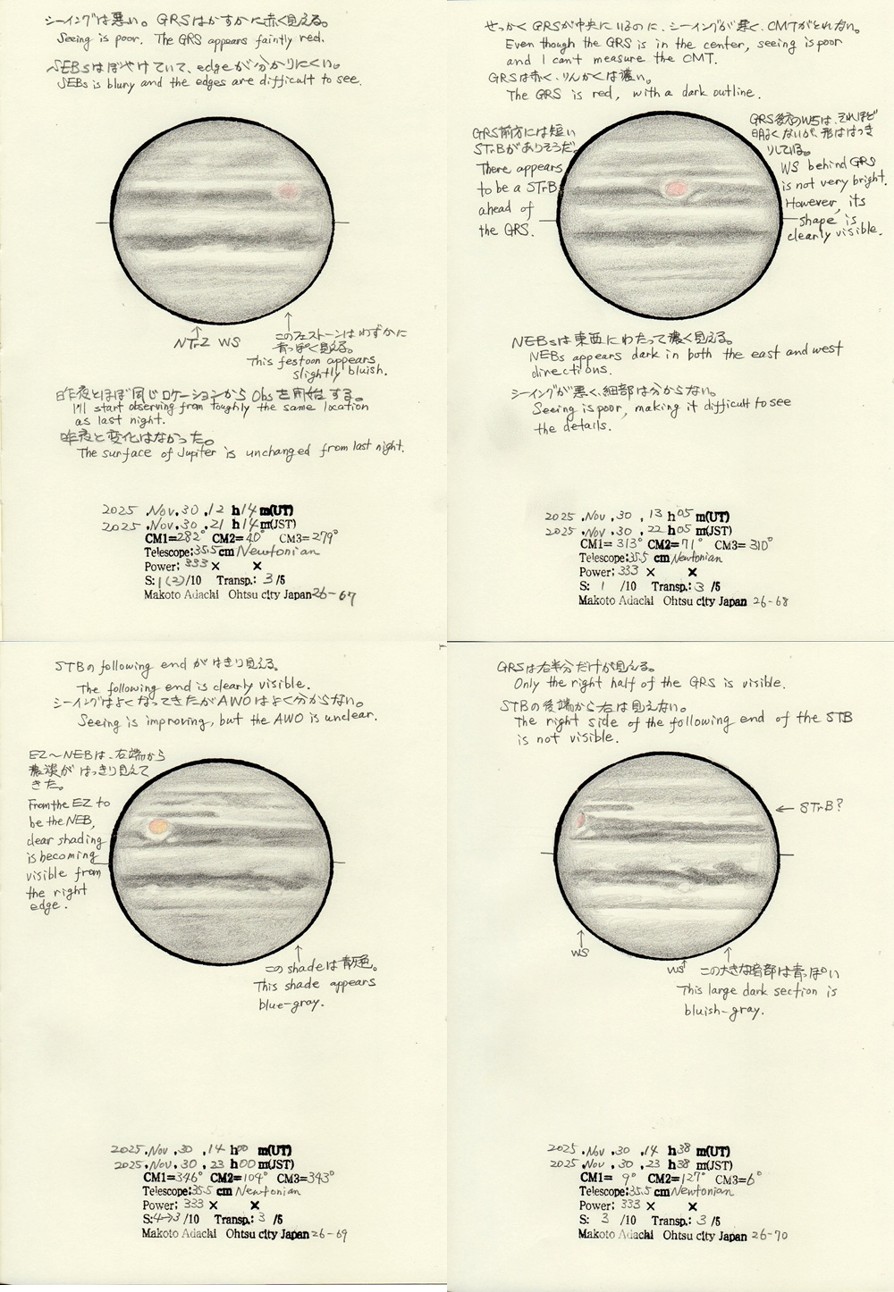 シーイングは悪い。GRSはかすかに赤く見える。
Seeing is poor. The GRS appears faintly red.
SEBsはぼやけていて、edgeが分かりにくい。
SEBs is blury and the edges are difficult to see.
NTrZ WS
このフェストーンはわずかに
青っぽく見える。
This festoon appears
slightly bluish.
昨夜とほぼ同じロケーションからObsを開始する。
I'll start observing from roughly the same location
as last night.
昨夜と変化はなかった。
The surface of Jupiter is unchanged from last night.
2025 .Nov.30 .12 h14 m(UT)
2025 .Nov.30 .21 h14 m(JST)
CM1=282° CM2=40° CM3=279°
Telescope:35.5cm Newtonian
Power: 333 × ×
S: 1(2)/10 Transp.: 3/5
Makoto Adachi Ohtsu city Japan 26-67
せっかくGRSが中央にいるのに、シーイングが悪く、CMTがとれない。
Even though the GRS is in the center, seeing is poor
and I can't measure the CMT.
GRSは赤く、りんかくは濃い。
The GRS is red, with a dark outline.
GRS前方には短い
STrBがありそうだ。
There appears
to be a STrB
ahead of
the GRS.
GRS後方のWSは、それほど
明るくないが、形ははっき
りしている。
WS behind GRS
is not very bright.
However, its
shape is
clearly visible.
NEBsは東西にわたって濃く見える。
NEBs appears dark in both the east and west
directions.
シーイングが悪く、細部は分からない。
Seeing is poor, making it difficult to see
the details.
2025 .Nov .30 .13 h05 m(UT)
2025 .Nov .30 .22 h05 m(JST)
CM1= 313° CM2=71° CM3= 310°
Telescope:35.5 cm Newtonian
Power: 333 × ×
S: 1 /10 Transp.: 3 /5
Makoto Adachi Ohtsu city Japan 26-68
STBのfollowing endがはきり見える。
The following end is clearly visible.
シーイングはよくなってきたがAWOはよく分からない。
Seeing is improving, but the AWO is unclear.
EZ～NEBは、右端から
濃淡がはっきり見えて
きた。
From the EZ to
be the NEB,
clear shading
is becoming
visible from
the right
edge.
このshadeは青灰色。
This shade appears
blue-gray.
2025 .Nov .30 .14 h00 m(UT)
2025 .Nov .30 .23 h00 m(JST)
CM1=346° CM2=104° CM3=343°
Telescope:35.5 cm Newtonian
Power: 333 × ×
S:4→3/10 Transp.: 3 /5
Makoto Adachi Ohtsu city Japan 26-69
GRSは右半分だけが見える。
Only the right half of the GRS is visible.
STBの後端から右は見えない。
The right side of the following end of the STB
is not visible.
← STrB?
WS
WS
この大きな暗部は青っぽい
This large dark section is
bluish-gray.
2025 .Nov .30 .14 h38 m(UT)
2025 .Nov .30 .23 h38 m(JST)
CM1= 9° CM2=127° CM3=6°
Telescope:35.5 cm Newtonian
Power: 333 × ×
S: 3 /10 Transp.: 3 /5
Makoto Adachi Ohtsu city Japan 26-70